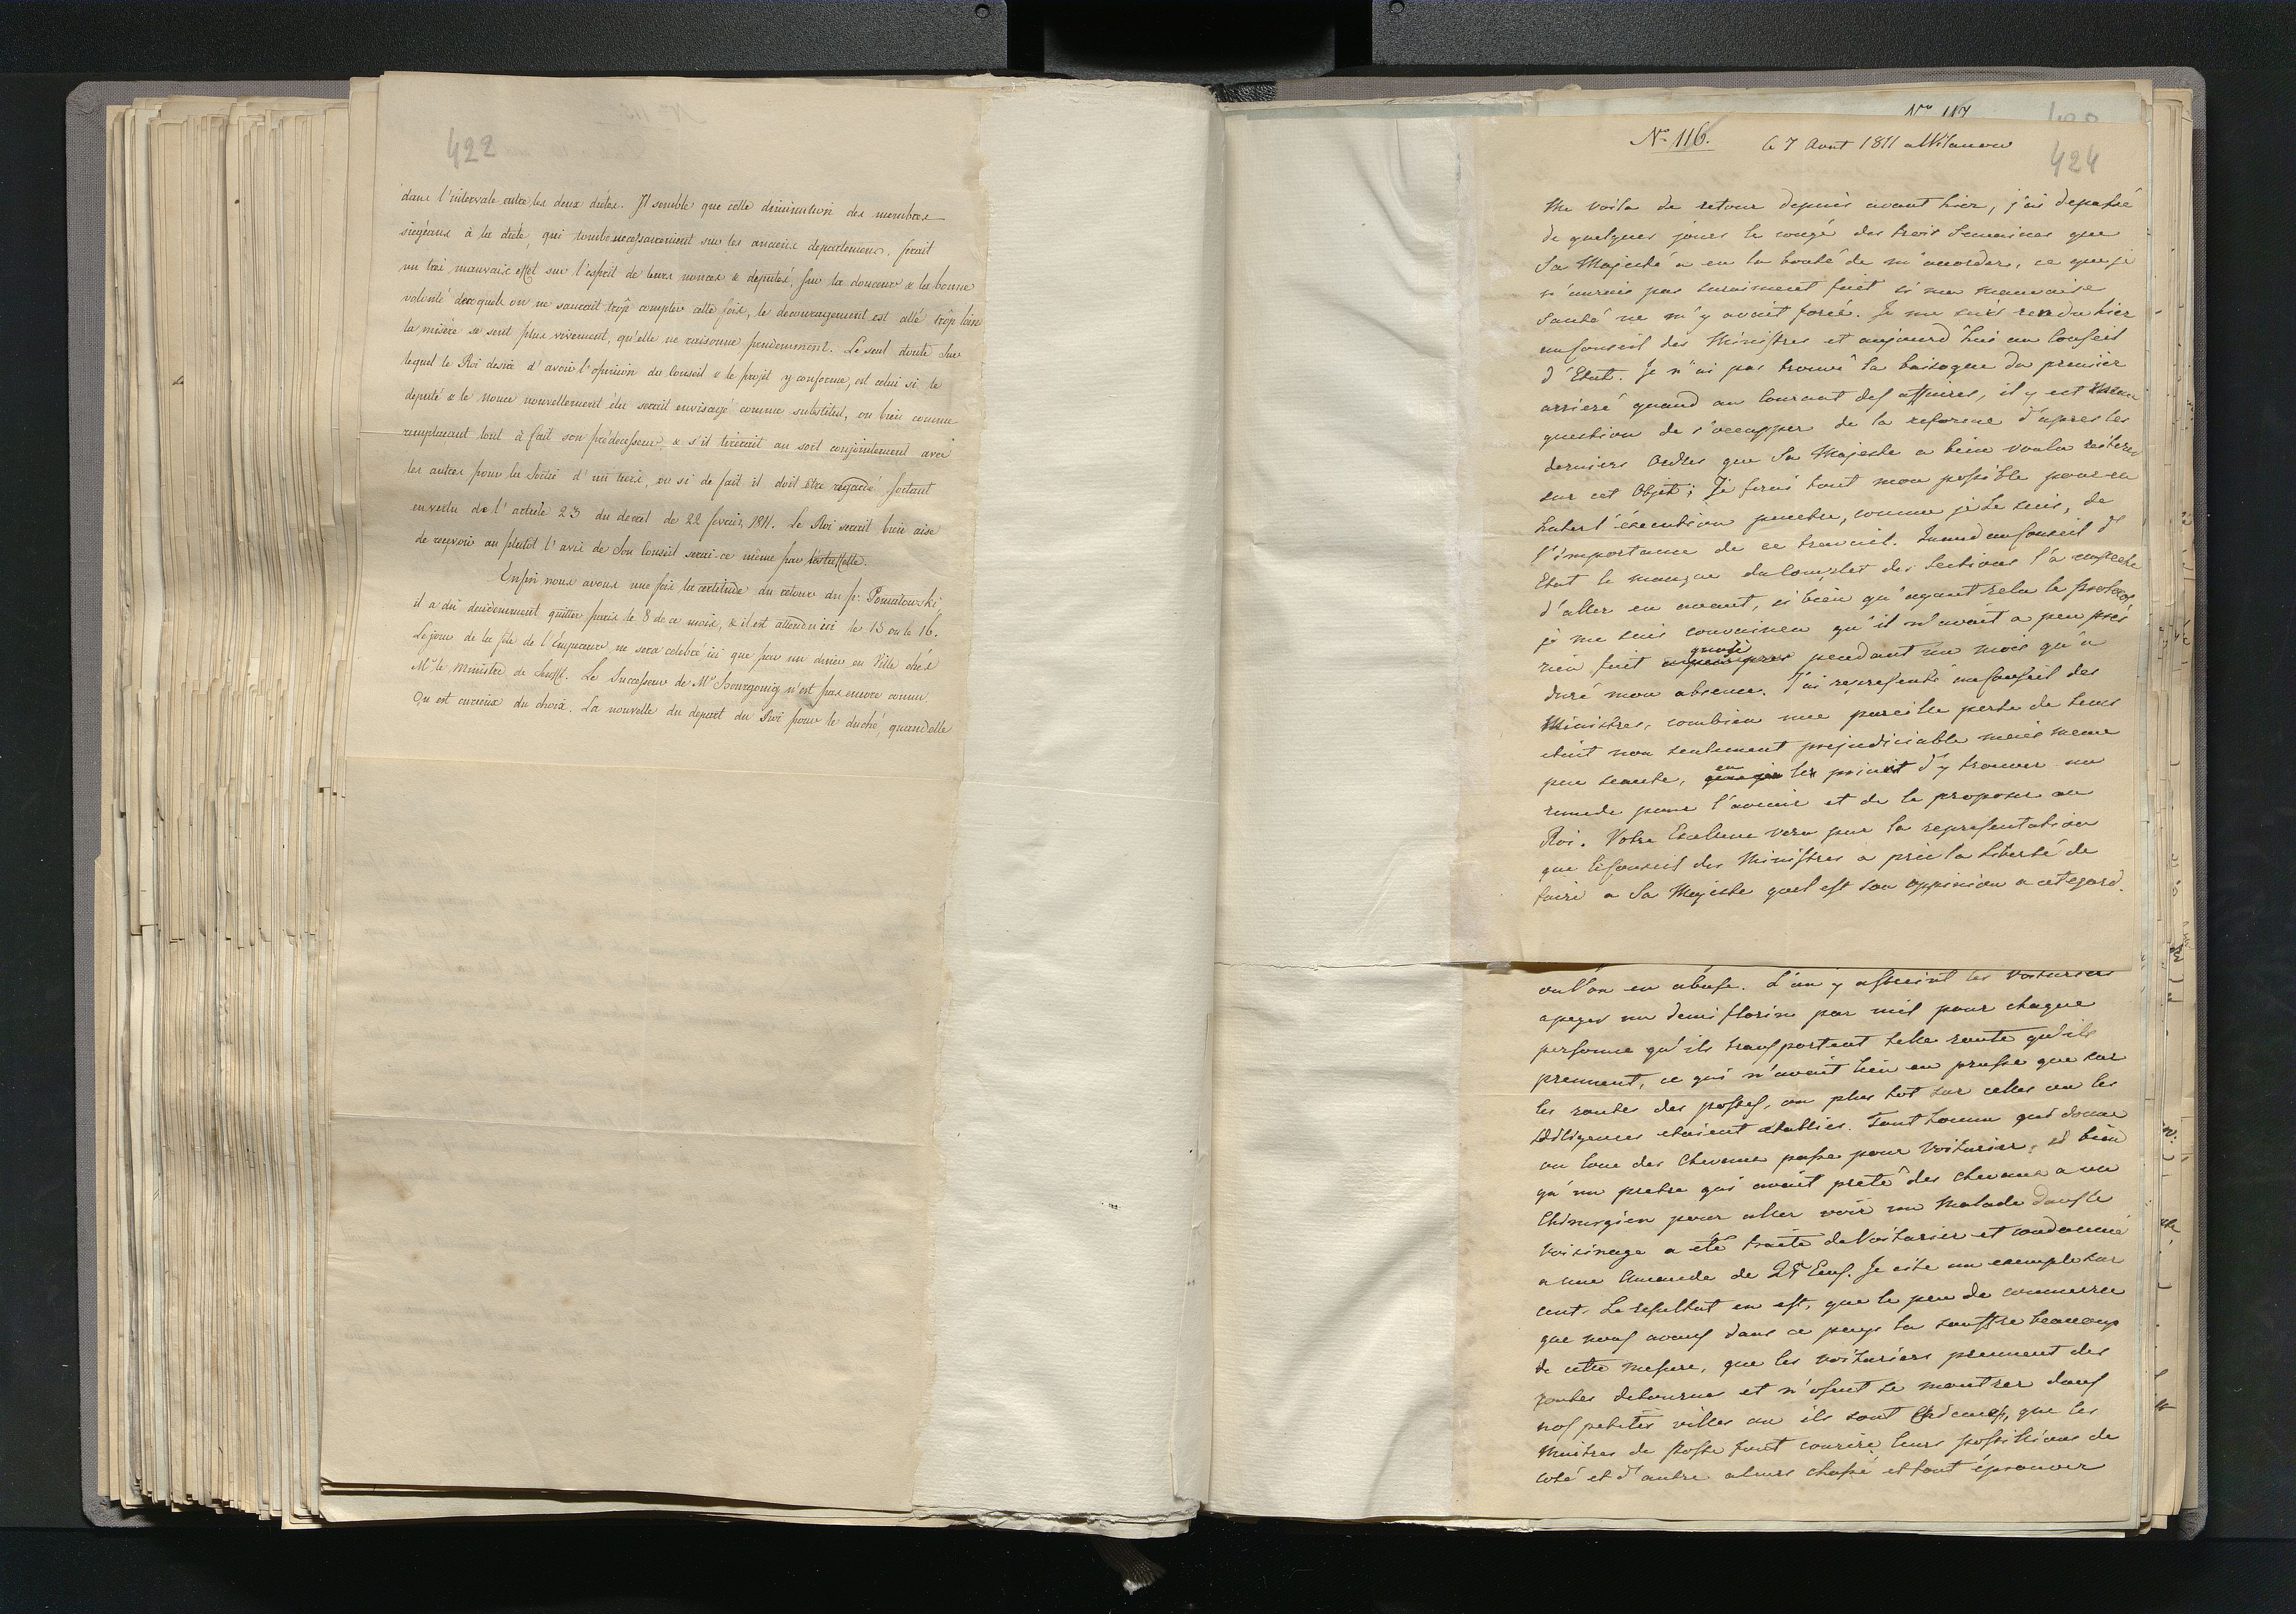 422
dans l'intervale entre les deux diètes. Il semble que cette diminution des membres
siégeans à la diète, qui tombe necessairement sur les anciens departemens, ferait
un très mauvais effet sur l'esprit de leurs nonces & deputés, sur la douceur & la bonne
volonté desquels on ne saurait trop compter cette fois, le decouragement est allé trop loin
la misère se sent plus vivement, qu'elle ne raisonne prudemment. Le seul doute sur
lequel le Roi desire d'avoir l'opinion du Conseil & le projet y conforme, est celui si le
deputé & le nonce nouvellement élu serait envisagé comme substitut, ou bien comme
remplacant tout à fait son prédecesseur, & s'il tirerait au sort conjointement avec
les autres pour la sortie d'un tiers, ou si de fait il doit être regardé sortant
en vertu de l'article 23 du decret de 22 fevrier 1811. Le Roi serait bien aise
de reçevoir au plutôt l'avis de Son Conseil serai-ce même par estaffette.
Enfin nous avons une fois la certitude du retour du p. Poniatowski
il a dû decidemment quitter paris le 8 de ce mois, & il est attendu ici le 15 ou le 16.
Le jour de la fête de l'Empereur ne sera celebré ici que par un diner en Ville chés
Mr le Ministre de Senfft. Le Successeur de Mr Bourgoing n'est pas encore connu
On est curieux du choix. La nouvelle du depart du Roi pour le duché, quand elle
No 117
No 116.
le 7 Aout 1811 a Wilanow
424
Me voila de retour depuis avant hier, j'ai depassé
de quelques jours le congé des trois Semaines que
Sa Majesté a eu la bonté de m'accorder, ce que je
n'aurais pas surement fait si ma mauvaise
Santé ne m'y avait forcé. Je me suis rendu hier
au Conseil des Ministres et aujourd'hui au Conseil
d'Etat. Je n'ai pas trouvé la besogne du premier
arrieré quand au Courant des affaires, il y est
question de s'occupper de la reforme d'apres les
derniers Ordres que Sa Majesté a bien voulu reiterer
sur cet Objet; Je ferai tout mon possible pour en
hater l'éxecution penetré, comme je le suis, de
l'importance de ce travail. Quand au Conseil d'
Etat le manque du Complet des Sections l'a empeché
d'aller en avant, si bien qu'ayant relu le protocol
je me suis convaincu qu'il n'avait a peu près
rien fait presque pendant un mois qu'a
duré mon absence. J'ai representé au Conseil des
Ministres, combien une pareille perte de tems
etait non seulement prejudiciable mais meme
peu seante, en les priant d'y trouver un
remede pour l'avenir et de le proposer au
Roi. Votre Excellence verra par la representation
que le Conseil des Ministres a prie la liberté de
faire a Sa Majesté quel est son oppinion a cet egard.
ou l'on en abuse. L'on y astreint les Voituriers
a payer un demi florin par mil pour chaque
personne qu'ils transportent telle route qu'ils
prennent, ce qui n'avait lieu en prusse que sur
les routes des postes, ou plus tot sur celles ou les
Diligences etaient etablies. Tout homme qui donne
ou loue des Chevaux passe pour Voiturier, si bien
qu'un pretre qui avait preté des chevaux a un
Chirurgien pour aller voir un Malade dans le
Voisinage a été traité de Voiturier et condamné
a une Amende de 25 Ecus. Je cite un exemple sur
cent. Le resultat en est, que le peu de commerce
que nous avons dans ce pays la souffre beaucoup
de cette mesure, que les voituriers prennent des
routes detournes et n'osent se montrer dans
nos petites villes ou ils sont que les
Maitres de Poste font courire leurs postillions de
coté et d'autre a leurs chasse et font éprouver